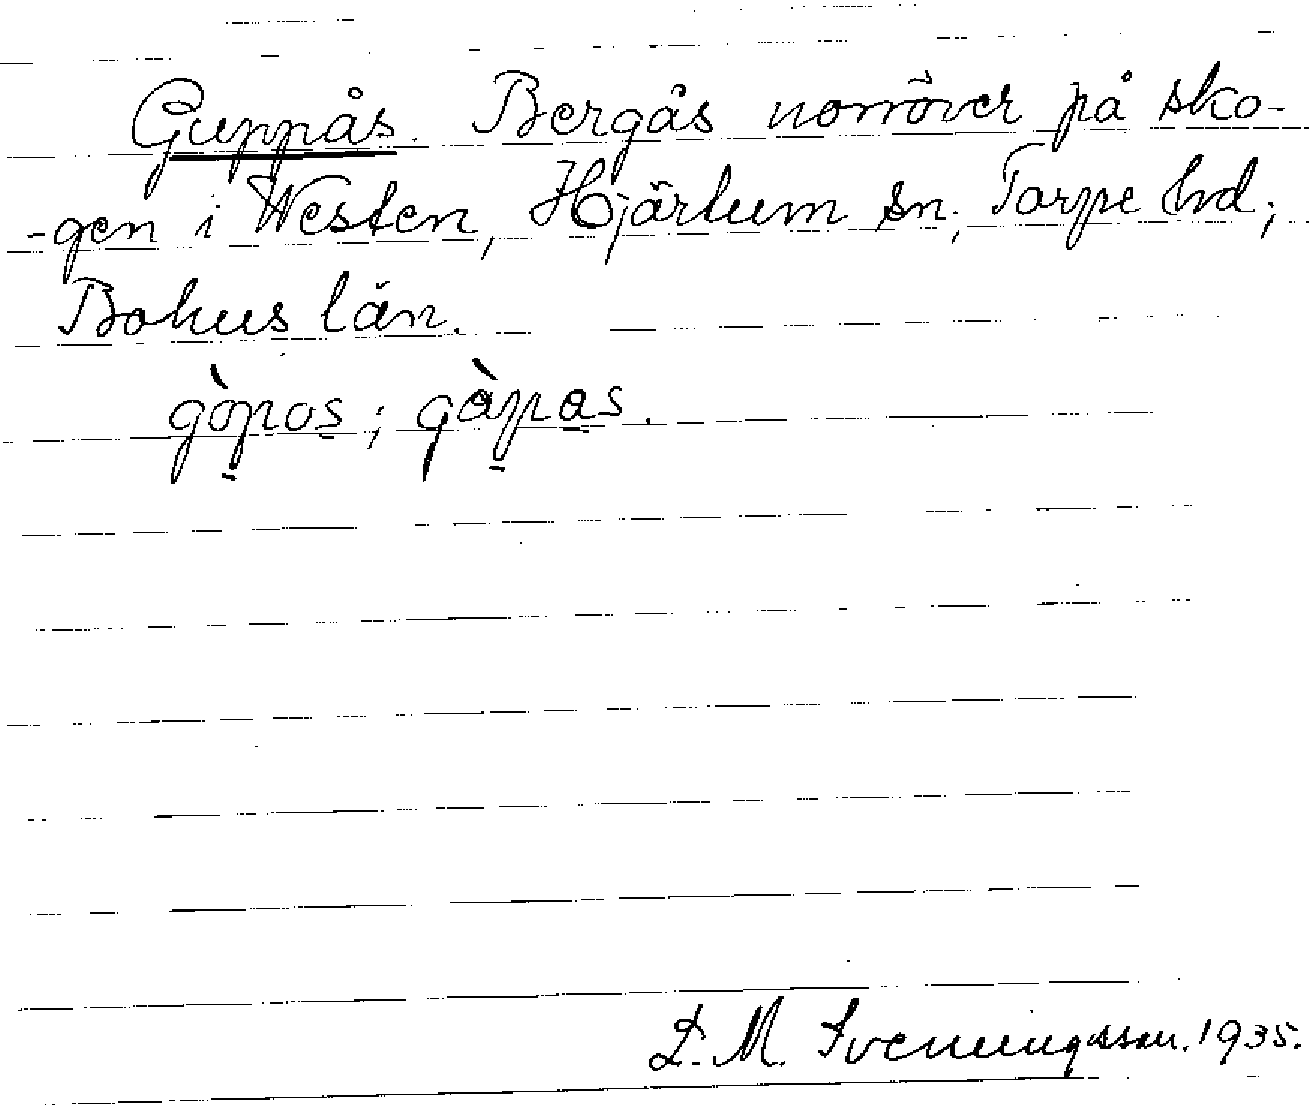 Guppås. Bergås norröver på sko-
-gen i Westen, Hjärtum sn, Torpe hd,
Bohus län.
gòpos; gàpas.
D. M. Sveningsson. 1935.